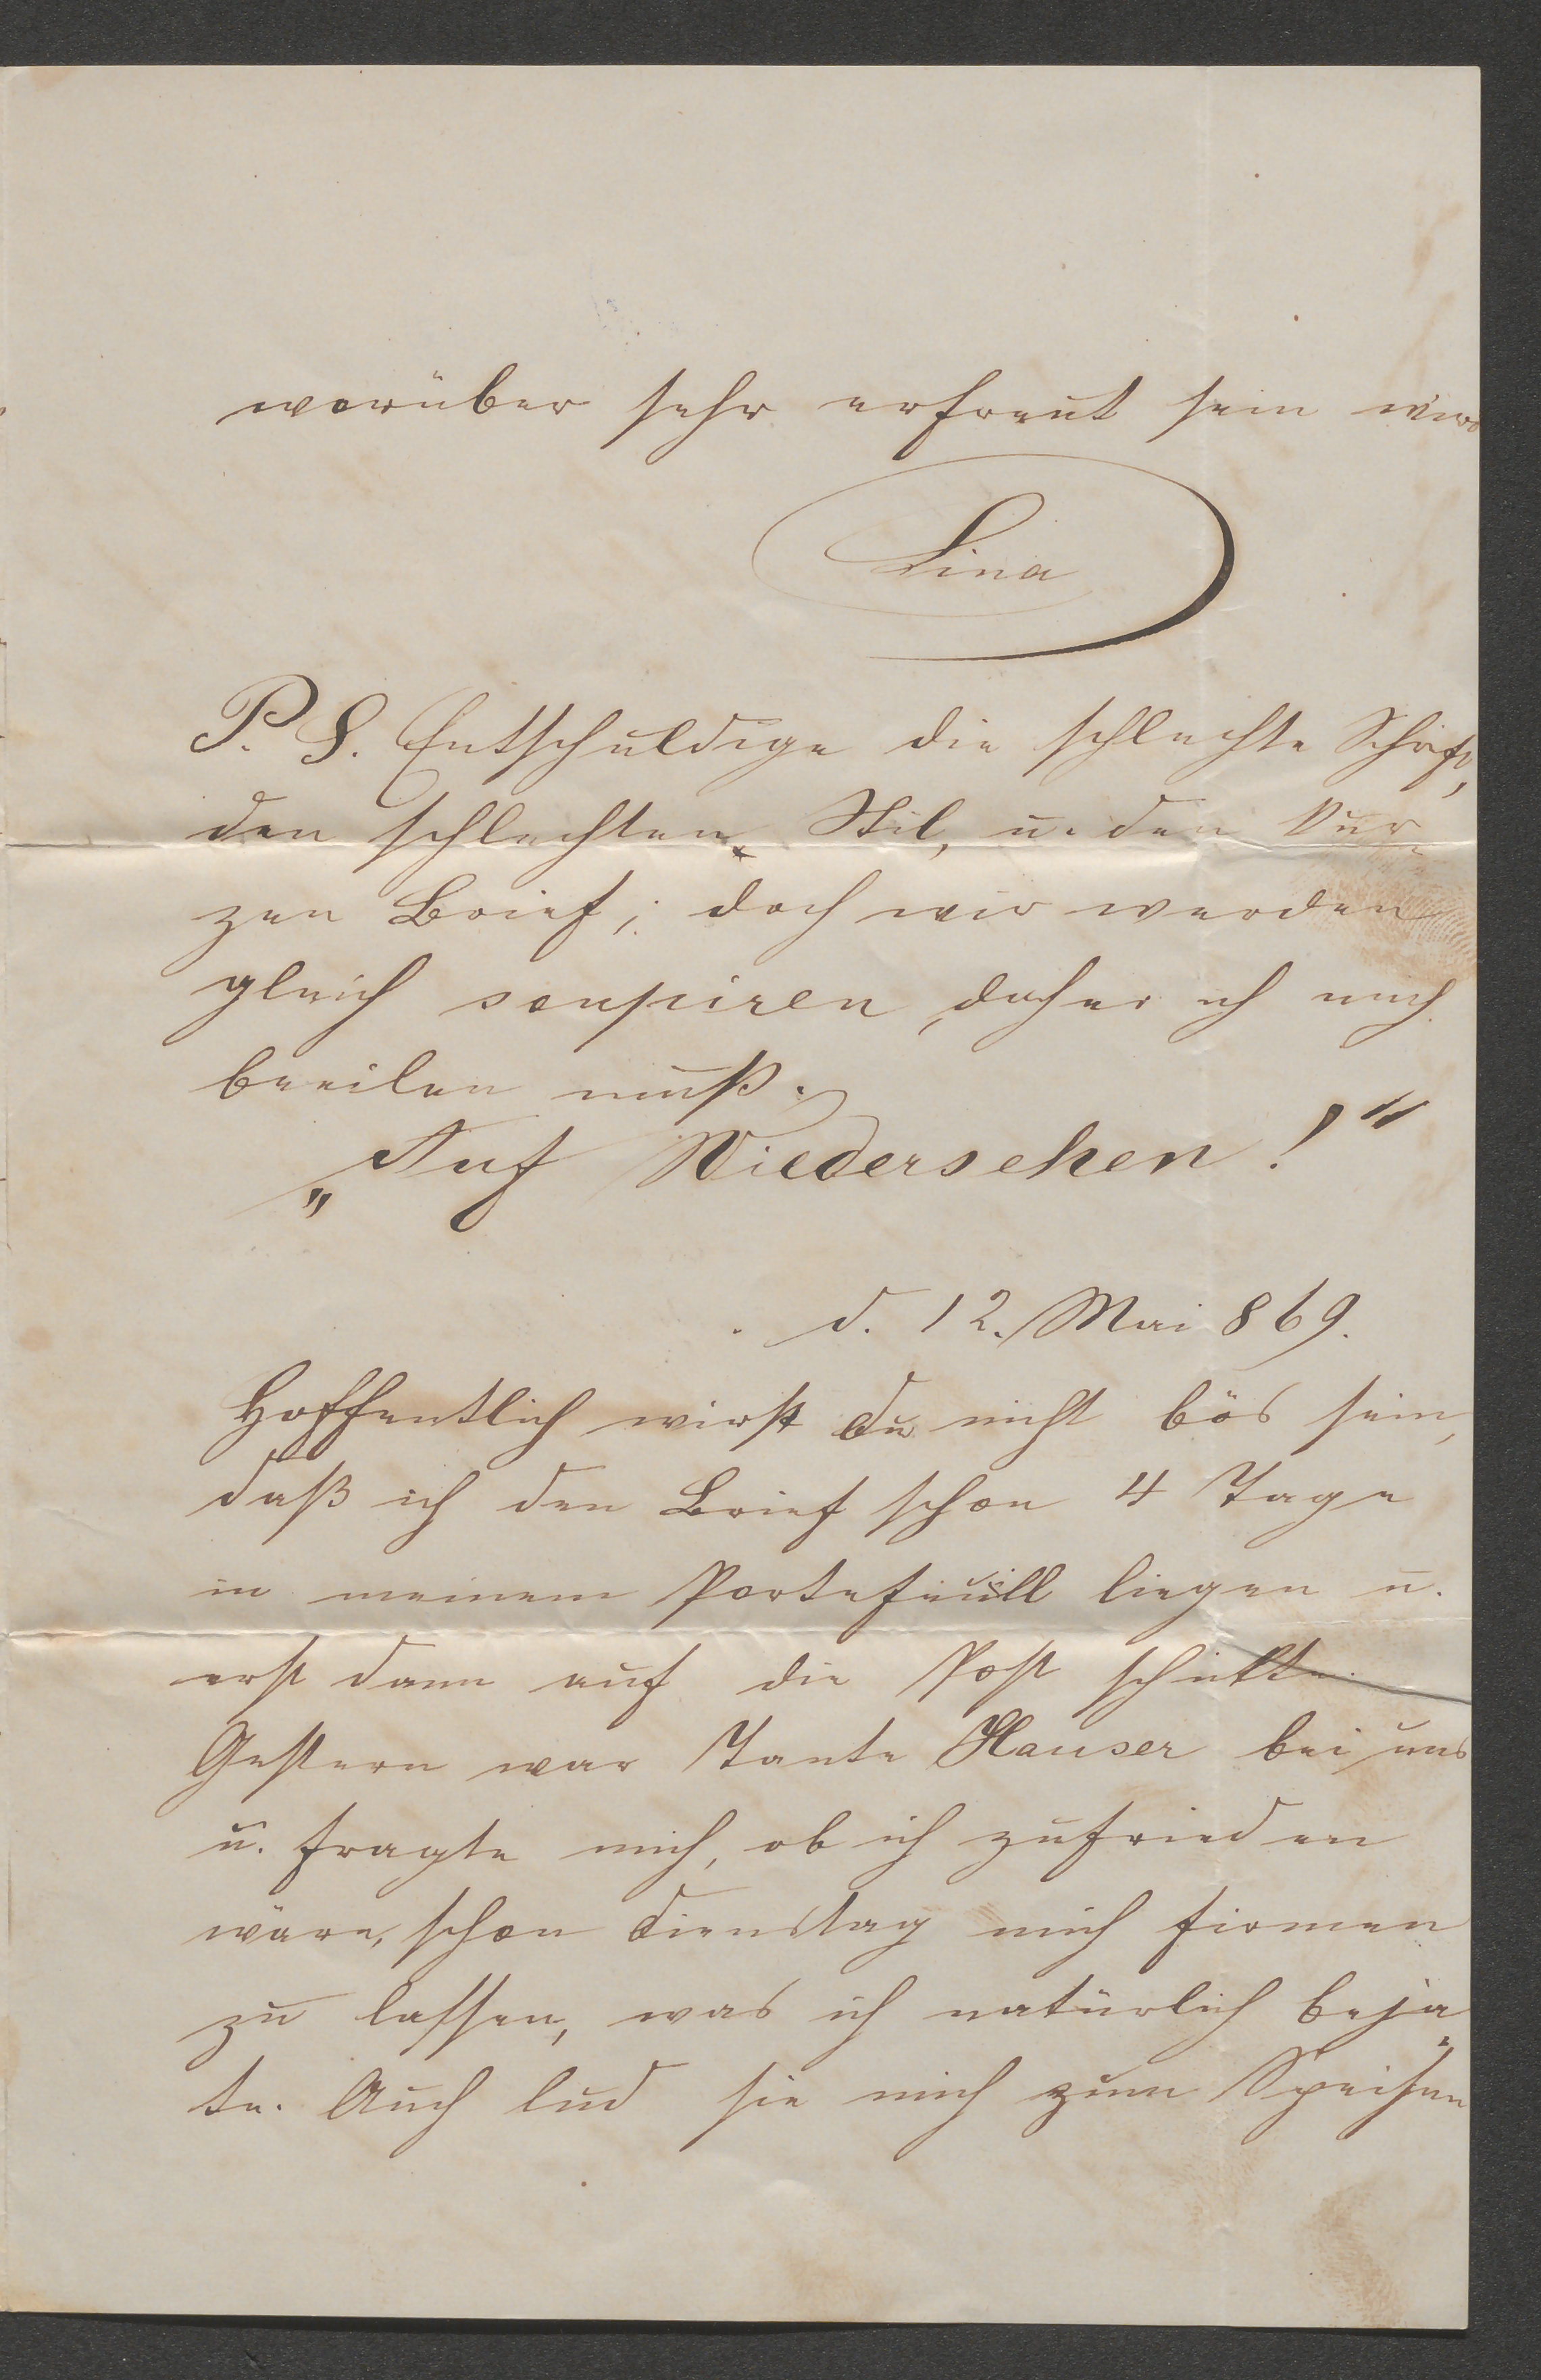 worüber sehr erfreut sein wird
Lina
P. S. Entschuldige die schlechte Schrift,
den schlechten Stil, u. den kur-
zen Brief; doch wir werden
gleich soupiren, daher ich mich
beeilen muß.
„Auf Wiedersehen!“
d. 12. Mai 869.
Hoffentlich wirst du nicht bös sein,
daß ich den Brief schon 4 Tage
in meinem Portefeuill liegen u.
erst dann auf die Post schikte.
Gestern war Tante Hauser bei uns
u. fragte mich, ob ich zufrieden
wäre, schon Dienstag mich firmen
zu lassen, was ich natürlich beja-
te. Auch lud sie mich zum Speisen